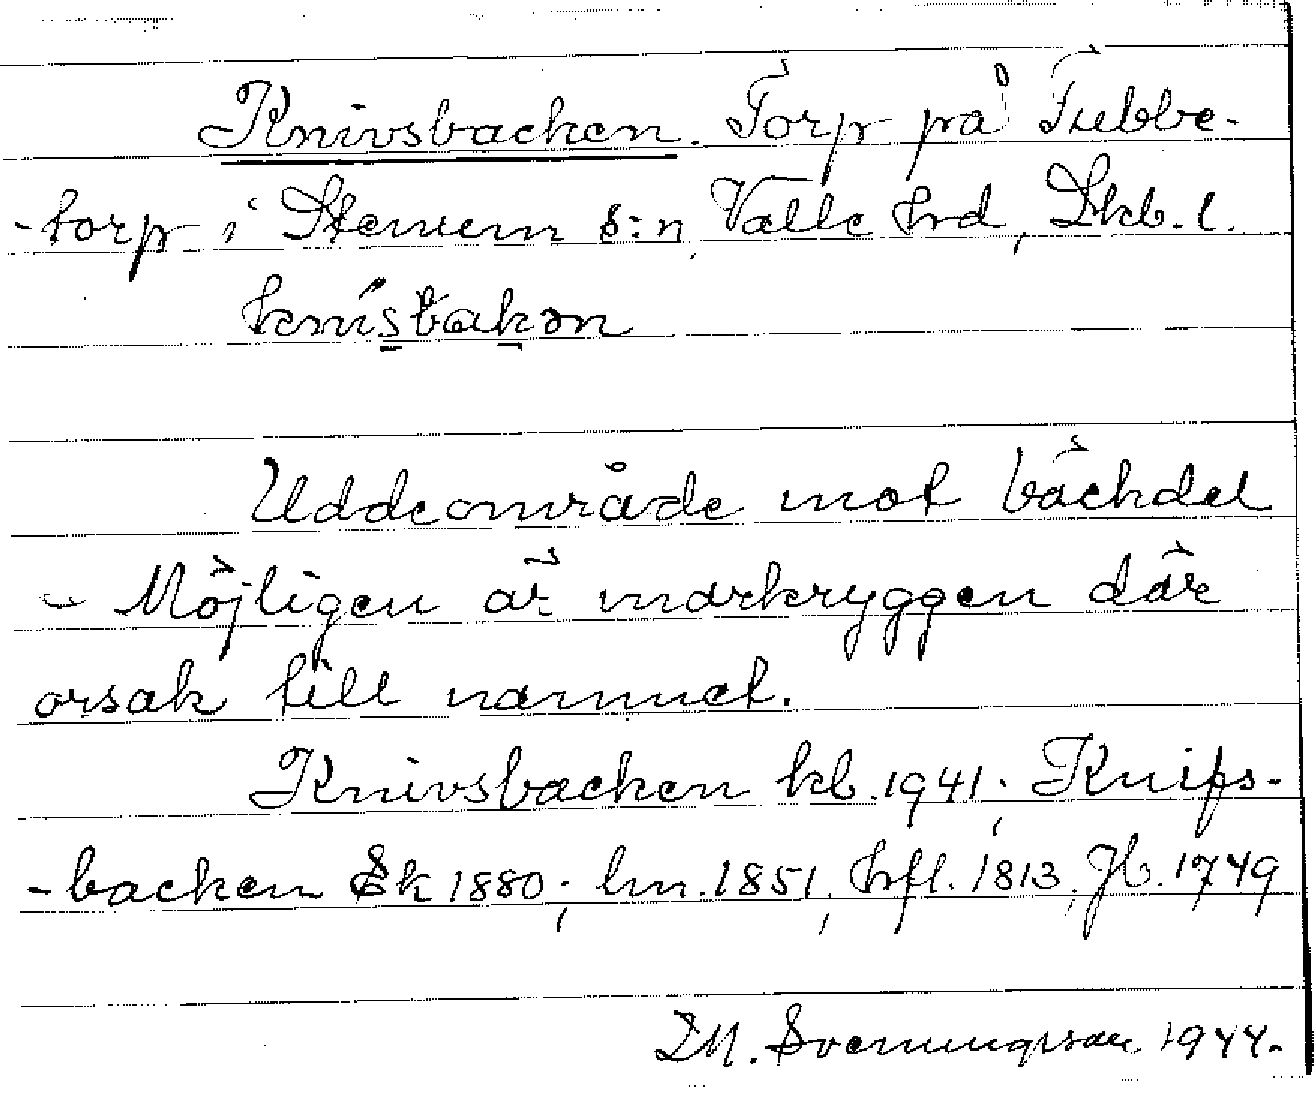 Knivsbacken. Torp på Tubbe-
-torp i Stenum s:n, Valle hrd, Skb. l.
knisbakən
Uddeområde mot bäckdel
- Möjligen är markryggen där
orsak till namnet.
Knivsbacken kb. 1941; Knifs-
-backen Ek 1880; hn. 1851, hfl. 1813, Jb. 1749
M. Svenungsson 1944.